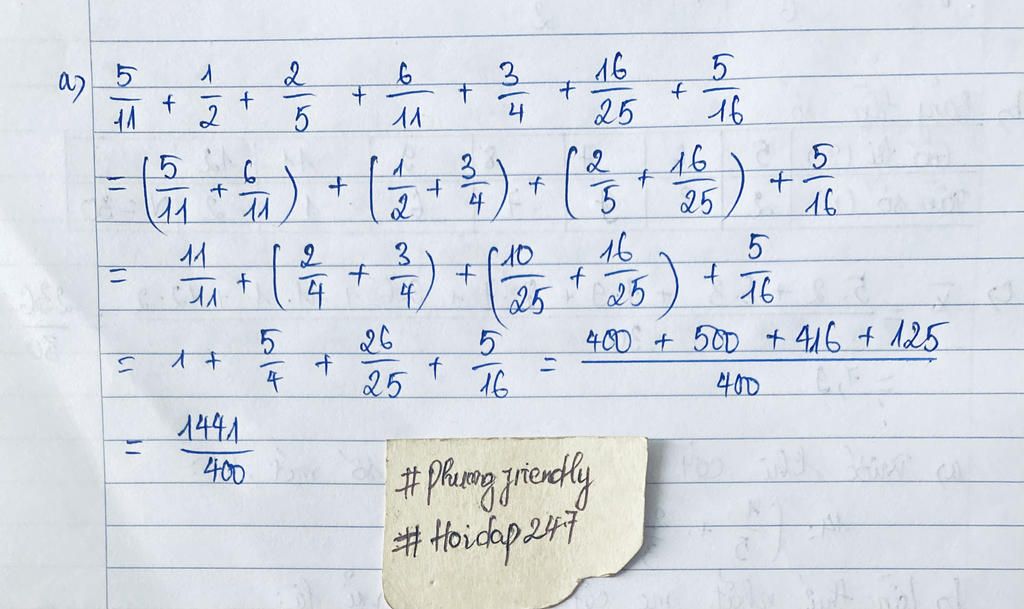 a) 5/11 + 1/2 + 2/5 + 6/11 + 3/4 + 16/25 + 5/16
= (5/11 + 6/11) + (1/2 + 3/4) + (2/5 + 16/25) + 5/16
= 11/11 + (2/4 + 3/4) + (10/25 + 16/25) + 5/16
= 1 + 5/4 + 26/25 + 5/16 = (400 + 500 + 416 + 125)/400
= 1441/400
#Phuong friendly
#Hoidap247